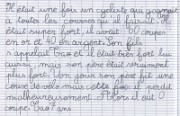 Il était une fois un cycliste qui gagnait
à toutes les courses qu'il faisait. Il
était super fort, il avait 60 coupes
en or et 40 en argent. Son fils
s'appelait Enzo et il était bien fort lui
aussi, mais son père était vraiment
plus fort. Un jour son père fit une
course de vélo mais cette fois il perdit
malheureusement. Alors il eut 0
coupe. Enzo 7 ans